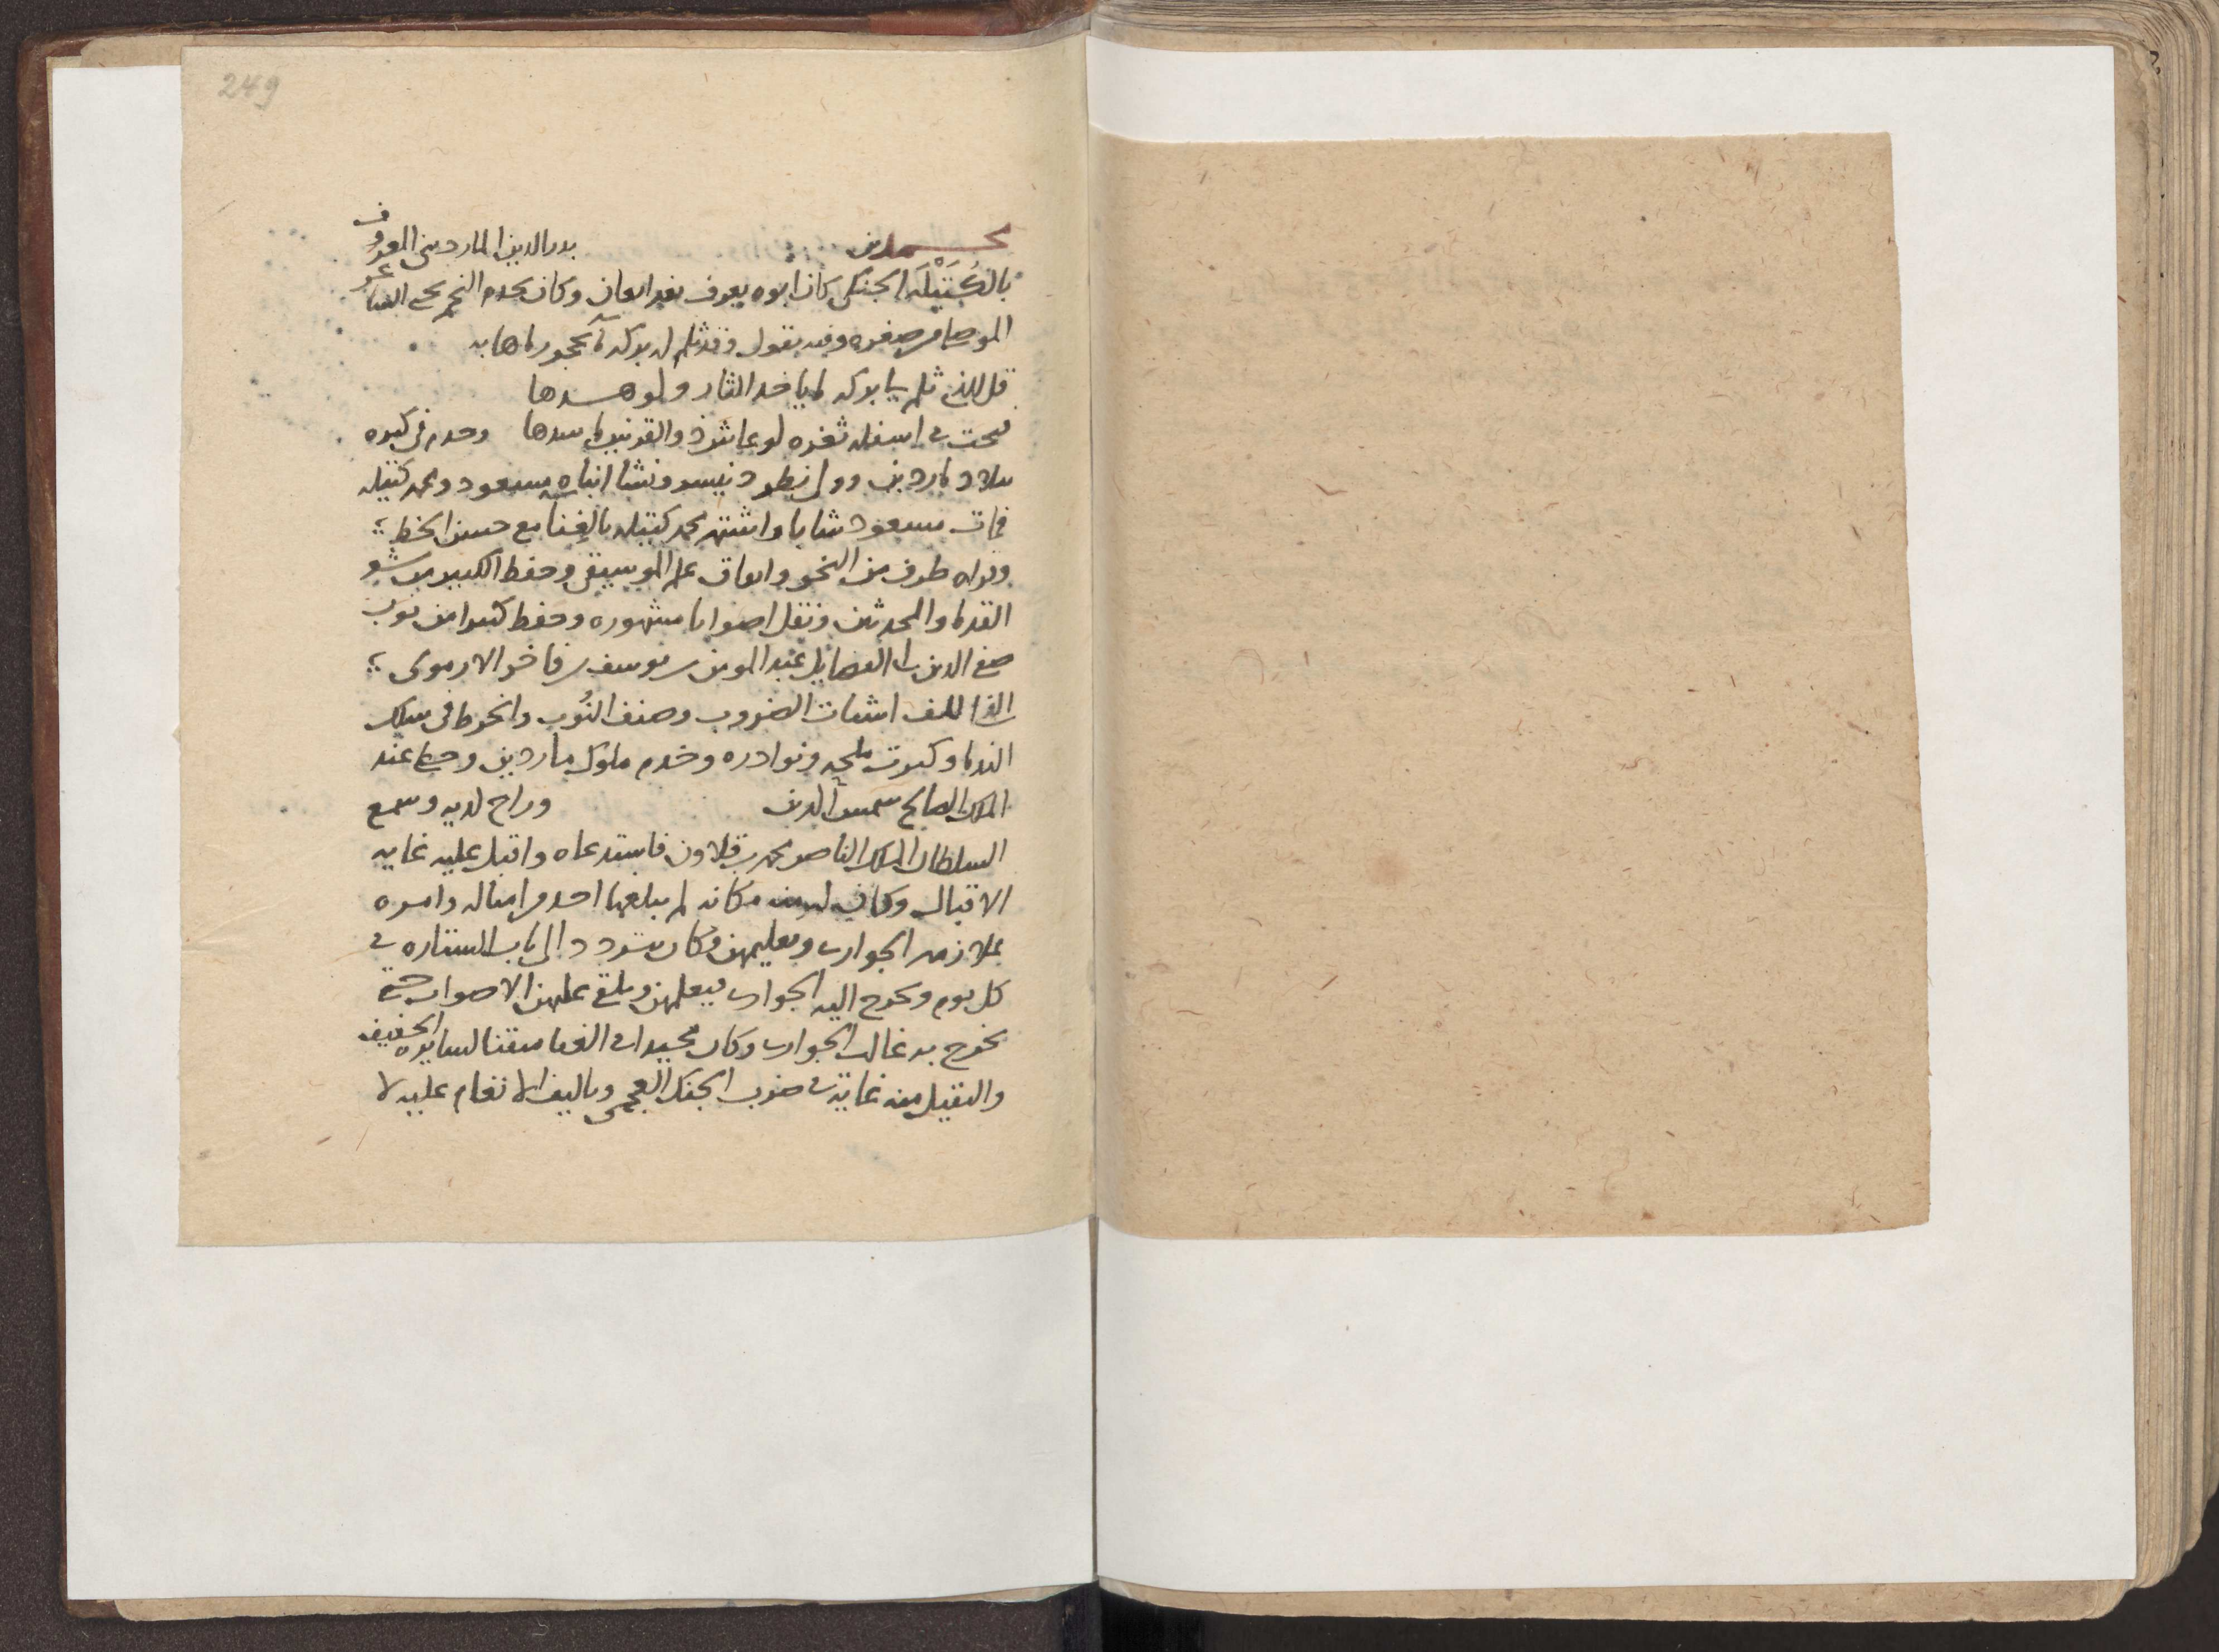 249
محمد بن بدر الدين المارديني المعروف
بالكُتَيْلَه الجنكي كان ابوه يعرف وكان يخدم النجم يحيى الشاعر
الموصلي من صغره وفيه يقول وقد ثلم له بوكه
قل للذي ثلم بابوكه ياخد الثار ولو
في اسفله ثغره لو عاش ذو القرنين ما سدها وخدم في كبره
بلاد ماردين ونشا ابناه مسعود ومحمد كتيله
فمات مسعود شابا واشتهر محمد كتيله بالغنا مع حسن الخط
وقراه طرف من النحو واتقان علم الموسيقى وحفظ الكثير من شعر
القدما والمحدثين ونقل اصواتا مشهوره وحفظ كثيرا من نوب
صفي الدين ابي الفضايل عبد المومن بن يوسف بن فاخر الارموي
الضروب وصنف النُوب وانخرط في سلك
الندما وكثرت ملحه ونوادره وخدم ملوك ماردين وحظي عند
الملك الصالح شمس الدين وراج لديه وسمع
السلطان الملك الناصر محمد بن قلاون فاستدعاه واقبل عليه غايه
الاقبال وكانت له منه مكانه لم يبلغها احد من امثاله وامره
بملازمه الجواري وتعليمهن وكان يتردد الى باب الستاره في
كل يوم وتخرج اليه الجواري فيعلمهن ويلقي عليهن الاصوات حتى
تخرج به غالب الجواري وكان مجيدا في الغنا متقنا لسايره الخفيف
والثقيل منه غايه في ضرب الجنك العجمي وتاليف الانغام عليه لا